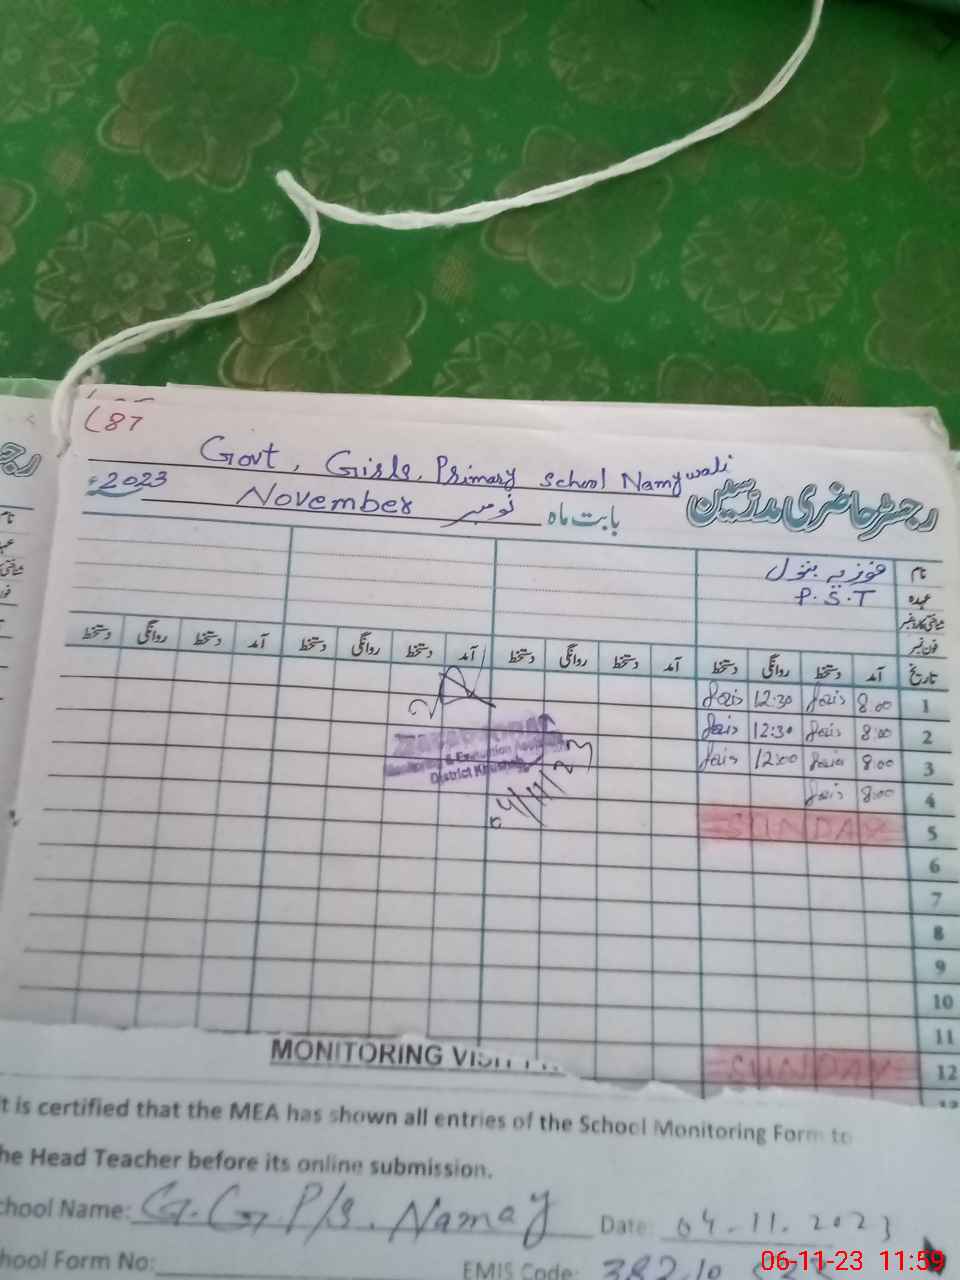 187
Govt, Girls, Primary School Namywali
رجسٹر حاضری مدرسین
بابت ماہ نومبر November 2023
نام فوزیہ بتول
عہدہ P.S.T
شناختی کارڈ نمبر
فون نمبر
تاریخ آمد دستخط روانگی دستخط آمد دستخط روانگی دستخط آمد دستخط روانگی دستخط آمد دستخط روانگی دستخط
1 8:00 12:30
2 8:00 12:30
3 8:00 12:00
4 8:00
5 SUNDAY
6
7
8
9
10
11
12 SUNDAY
Monitoring & Evaluation Assistant
District Khushab
04/11/23
MONITORING
t is certified that the MEA has shown all entries of the School Monitoring Form to
he Head Teacher before its online submission.
chool Name: G.G P/S. Namay Date: 04.11.2023
hool Form No: EMIS Code: 38210
06-11-23 11:59